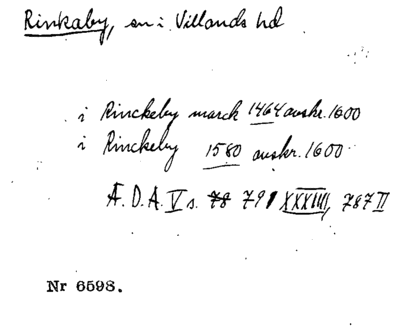 Rinkaby, sn i Villands hd
i Rinckeby marck 1464 avskr. 1600
i Rinckeby 1580 avskr. 1600
Æ.D.A. V s. 79, XXXIII, 787 II
Nr 6598.